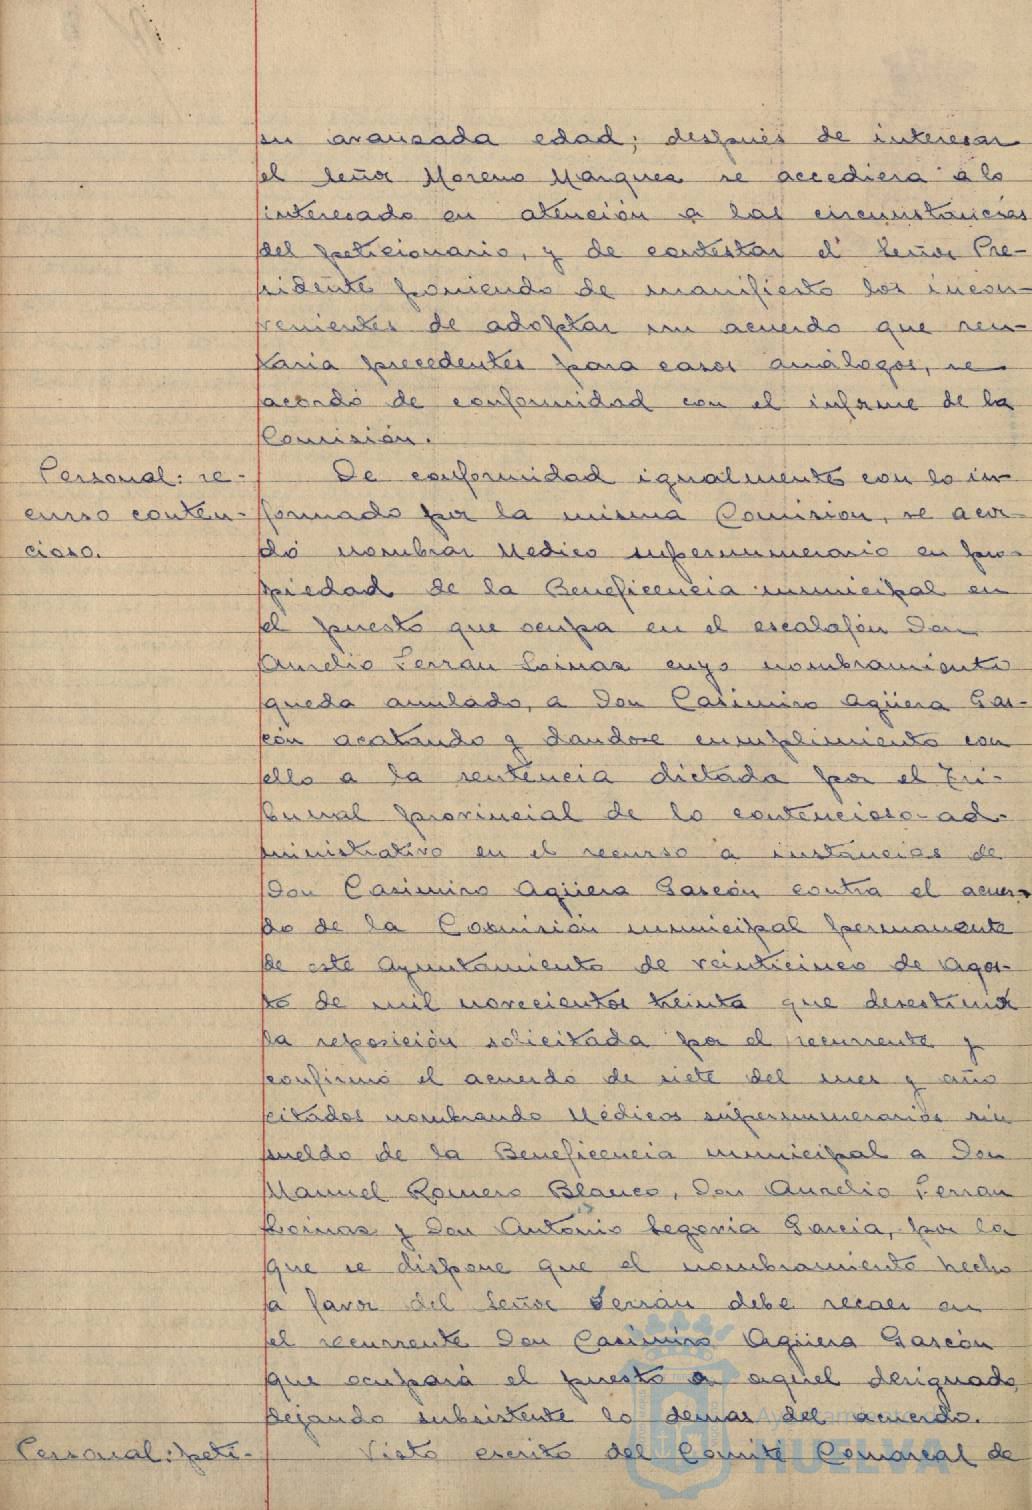 su avanzada edad; después de interesar
el Señor Moreno Marquez se accediera a lo
interesado en atención a las circunstancias
del peticionario, y de contestar el Señor Pre-
sidente poniendo de manifiesto los incon-
venientes de adoptar un acuerdo que sen-
taria precedentes para casos análogos, se
acordó de conformidad con el informe de la
Comisión.
Personal: re-
curso conten-
cioso.
De conformidad igualmente con lo in-
formado por la misma Comisión, se acor-
dó nombrar Medico supernumerario en pro-
piedad de la Beneficencia municipal en
el puesto que ocupa en el escalafón Don
Aurelio Ferran Loinaz cuyo nombramiento
queda anulado, a Don Casimiro Agüera Gas-
cón acatando y dandose cumplimiento con
ello a la sentencia dictada por el Tri-
bunal provincial de lo contencioso-ad-
ministrativo en el recurso a instancias de
Don Casimiro Agüera Gascón contra el acuer-
do de la Comisión municipal permanente
de este Ayuntamiento de veinticinco de Agos-
to de mil novecientos treinta que desestimó
la reposición solicitada por el recurrente y
confirmó el acuerdo de siete del mes y año
citados nombrando Médicos supernumerarios sin
sueldo de la Beneficencia municipal a Don
Manuel Romero Blanco, Don Aurelio Ferran
Loinaz y Don Antonio Segovia Garcia, por la
que se dispone que el nombramiento hecho
a favor del Señor Ferrán debe recaer en
el recurrente Don Casimiro Agüera Gascón
que ocupará el puesto a aquel designado
dejando subsistente lo demas del acuerdo.
Personal: peti-
Visto escrito del Comité Comarcal de
Ayuntamiento de
HUELVA